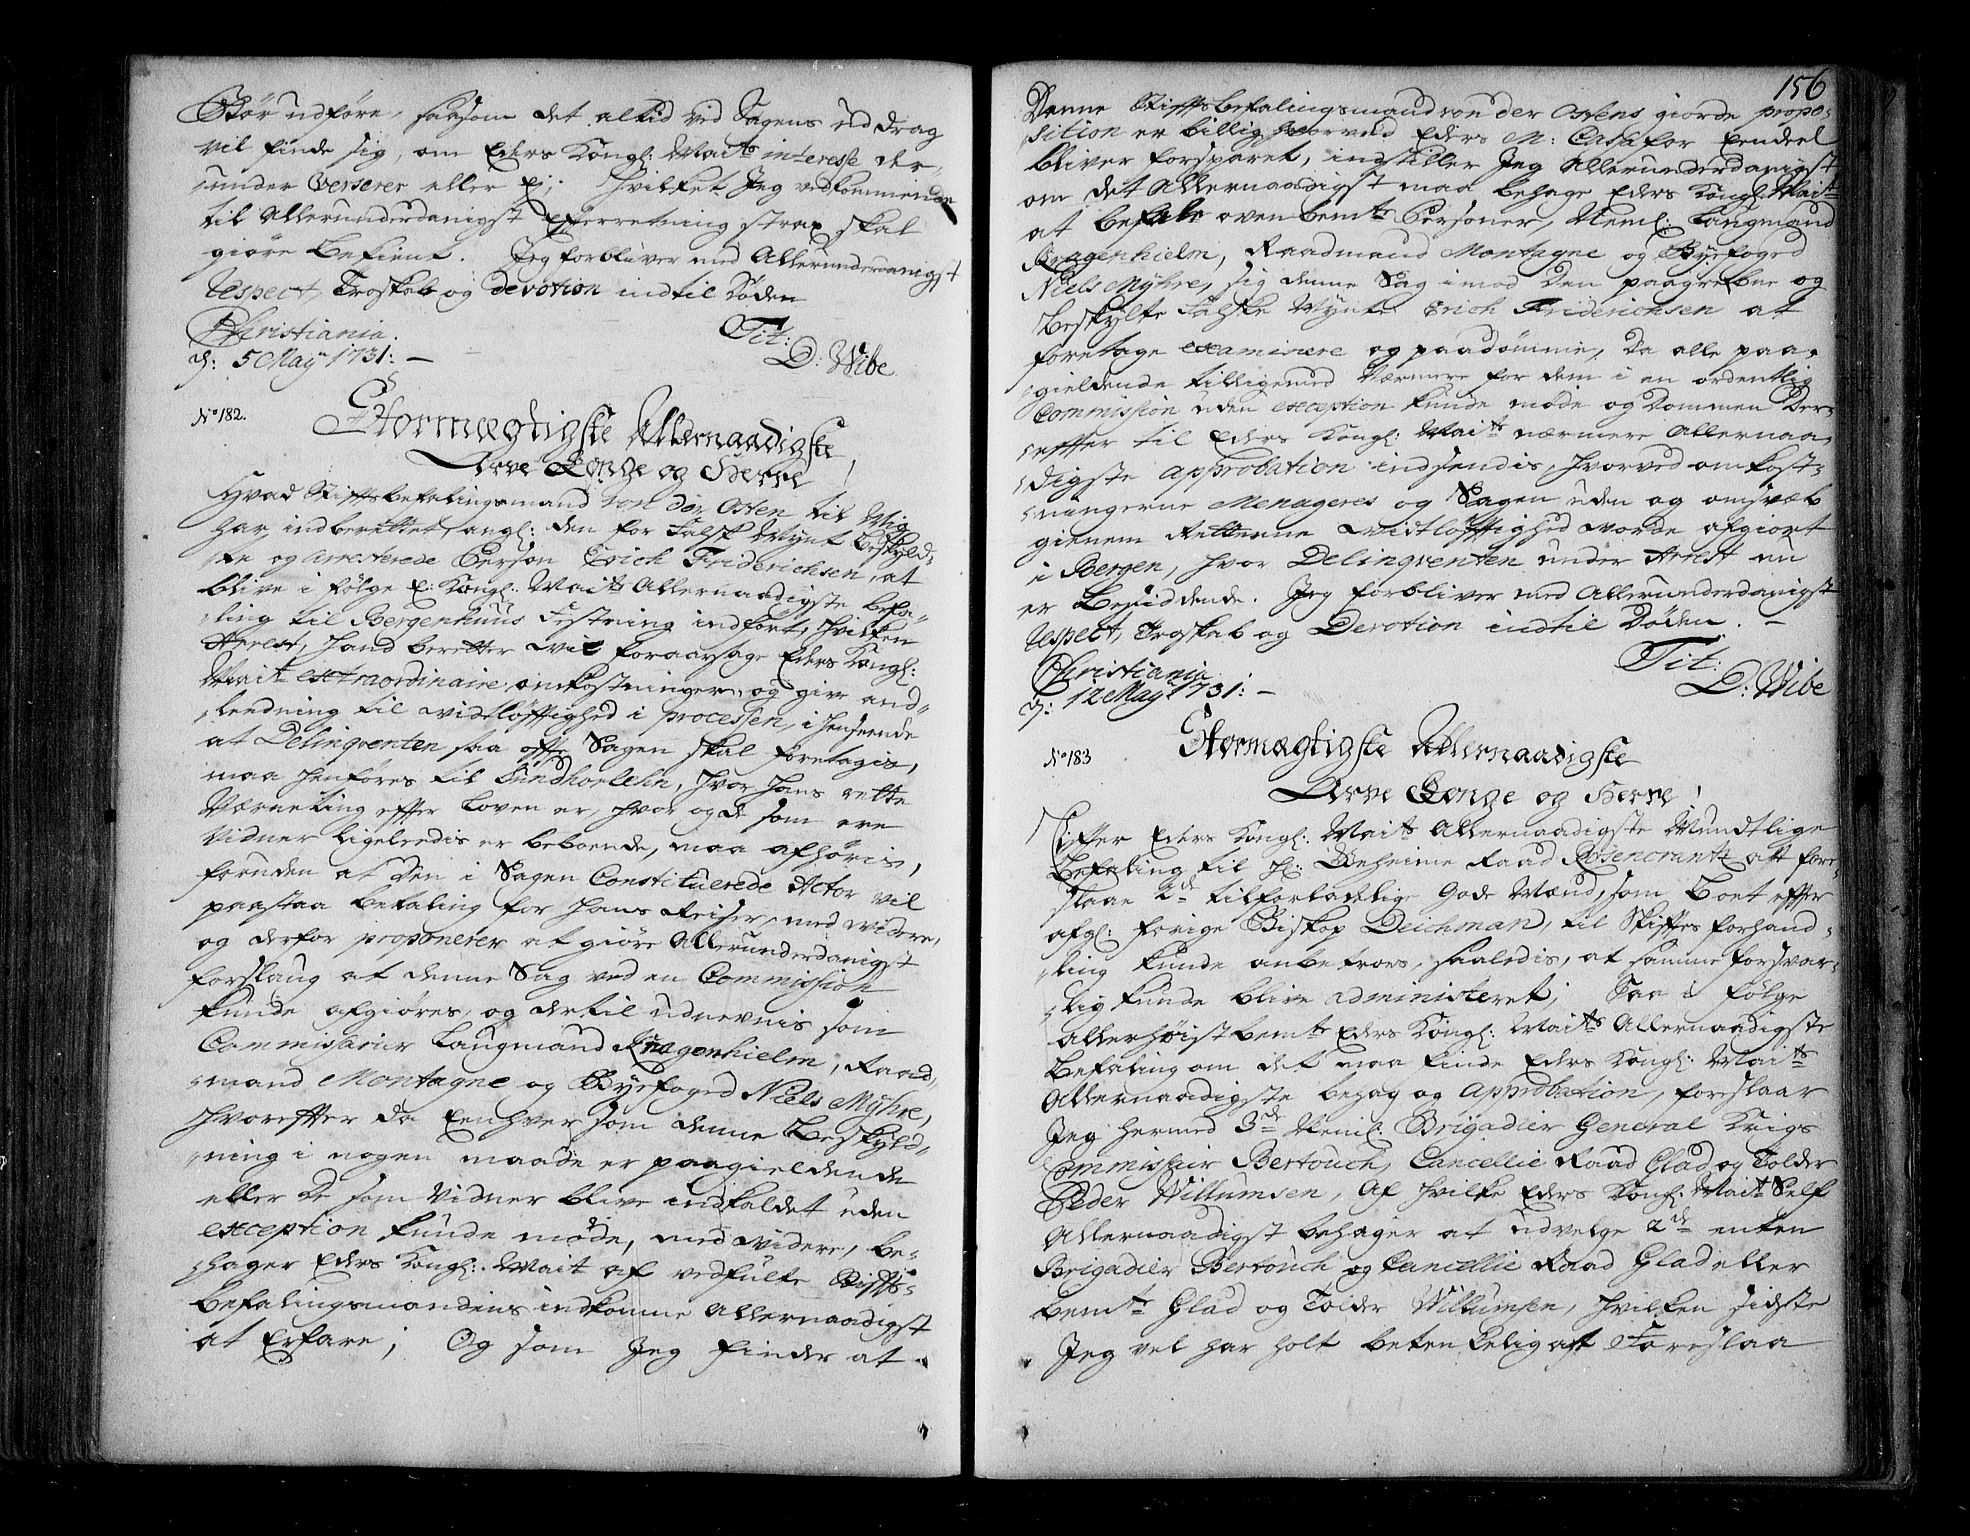 Bør udføre, saasom det altid ved Sagens uddrag
vil finde sig, om Eders Kongl: Maits interesse der-
under Verserer eller Ej; hvilket Jeg vedkommende
til Allerunderdanigst Efterretning strax skal
giøre bekient. Jeg forbliver med Allerunderdanigst
respect, Troskab og devotion indtil Døden
Christiania. Tit:
d: 5 May 1731:— D: Wibe
No 182. Stormægtigste Allernaadigste
Arve Konge og Herre!
Hvad Stiftsbefalingsmand von der Osten til Mig
har indberettet, angl: den for Falsk Mynt beskyld-
te og Arresterede Person Erich Friderichsen, at
blive i følge E: Kongl: Maits Allernaadigste befa-
ling til Bergenhuus Festning indført, hvilken
Arrest, hand beretter vil foraarsage Eders Kongl:
Mait extraordinaire omkostninger, og give and-
ledning til vidtløfftighed i processen, i henseende
at Delinqventen saa offte Sagen skal foretagis,
maa henføres til Sundhorlehn, hvor hans rette
Værneting effter loven er, hvor og de som ere
Vidner ligeledis er beboende, maa afhøris,
foruden at den i Sagen Constituerede Actor vil
paastaa betaling for hans Reiser, med videre,
og derfor proponerer at giøre Allerunderdanigst
forslaug at denne Sag ved en Commission
kunde afgiøres, og dertil udnevnis som
Commissarier Laugmand Kragenhielm, Raad-
mand Montagne og Byefoged Niels Myhre,
hvoreffter da Eenhver som denne beskyld-
ning i nogen maade er paagieldende
eller de som Vidner blive indkaldet uden
exception kunde møde, med videre, be-
hager Eders Kongl: Mait af vedfulte Stiffts-
befalingsmandens indkomne Allernaadigst
at Erfare; Og som Jeg finder at
156
Denne Stiffsbefalingsmand von der Ostens giorde propo-
sition er billig hvorved Eders M: Cassa for Eendeel
bliver forsparet, indstiller Jeg Allerunderdanigst
om det Allernaadigst maa behage Eders Kongl: Mait
at befale ovenbemte Personer, Neml: Laugmand
Kragenhielm, Raadmand Montagne og Byefoged
Niels Myhre, sig denne Sag imod Den paagrebne og
beskylte Falske Mynter Erich Friderichsen at
foretage examinere og paadømme, Da alle paa-
gieldende tilligemed Værmere for dem i en ordentlig
Commission uden exception kunde møde og Dommen Der-
effter til Eders Kongl: Maits nærmere Allernaa-
digste approbation indsendis, hvorved omkost-
ningerne Menageres og Sagen uden og omsvøb
gienem Retterne vidtløfftighed vorde afgiort
i Bergen, hvor Delinqventen under Arrest nu
er befiddende. Jeg forbliver med Allerunderdanigst
respect, Troskab og Devotion indtil Døden. —
Christiania Tit:
d: 12 May 1731:— D: Wibe
No 183 Stormægtigste Allernaadigste
Arve Konge og Herre!
Effter Eders Kongl: Maits Allernaadigste Mundtlige
Befaling til H: Geheime Raad Rosencrantz att fore-
slaae 2de tilforladelige Gode Mænd, som Boet effter
afgl: forige Biskop Deichman, til Skifftes forhand-
ling kunde anbetroes, saaledis, at samme forsvar-
lig kunde blive administeret; Saa i følge
allerhøist bemte Eders Kongl: Maits Allernaadigste
Befaling om det maa finde Eders Kongl: Maits
Allernaadigste behag og Approbation, foreslaar
Jeg hermed 3de Neml: Brigadier General Krigs
Commissair Bertouch, Cancellie Raad Glad og Tolder
Peder Willumsen, Af hvilke Eders Kongl: Mait Self
Allernaadigst behager at udvelge 2de enten
Brigadier Bertouch og Cancellie Raad Glad eller
bemte Glad og Tolder Willumsen, hvilken sidste
Jeg vel har holt betenkelig att Foreslaa